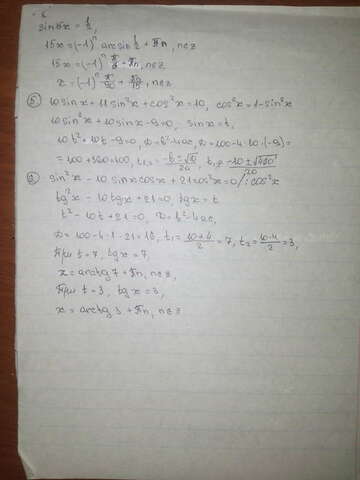 sin15x = 1/2,
15x = (-1)ⁿ arcsin 1/2 + πn, n∈z
15x = (-1)ⁿ π/6 + πn, n∈z
x = (-1)ⁿ π/90 + πn/15, n∈z
⑤ 10sinx + 11sin²x + cos²x = 10, cos²x = 1-sin²x
10sin²x + 10sinx - 9 = 0, sinx = t,
10t² + 10t - 9 = 0, D = b²-4ac, D = 100-4·10·(-9) =
= 100 + 360 = 460, t₁,₂ = (-b ± √D)/2a, t₁,₂ = (-10 ± √460)/20
sin²x - 10 sinxcosx + 21cos²x = 0 /: cos²x
tg²x - 10tgx + 21 = 0, tgx = t
t² - 10t + 21 = 0, D = b²-4ac,
D = 100-4·1·21 = 16, t₁ = (10+4)/2 = 7, t₂ = (10-4)/2 = 3,
При t = 7, tgx = 7,
x = arctg 7 + πn, n∈z,
При t = 3, tgx = 3,
x = arctg 3 + πn, n∈z